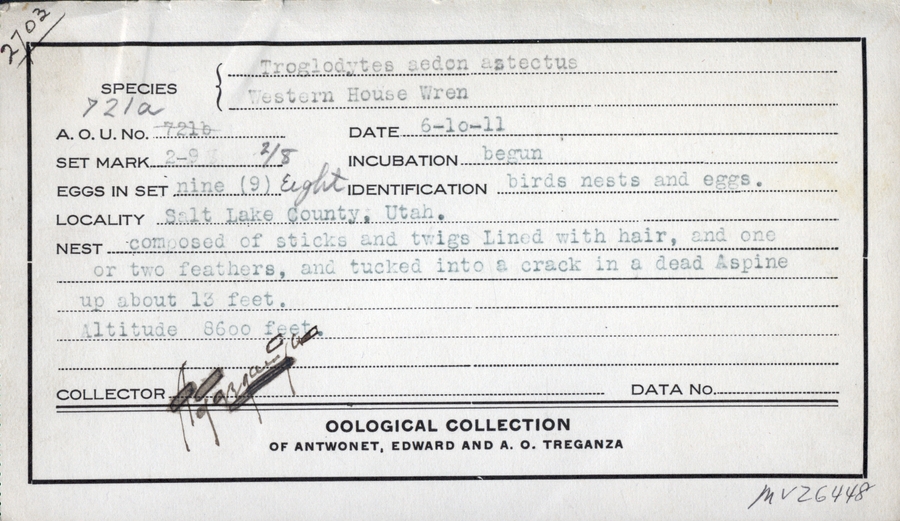 2703
Troglodytes aedon aztectus
SPECIES
Western House Wren
721a
A. O. U. No. 721b DATE 6-10-11
SET MARK 2-9 2/8 INCUBATION begun
EGGS IN SET nine (9) Eight IDENTIFICATION birds nests and eggs.
LOCALITY Salt Lake County, Utah.
NEST composed of sticks and twigs Lined with hair, and one
or two feathers, and tucked into a crack in a dead Aspine
up about 13 feet.
Altitude 8600 feet.
COLLECTOR DATA No.
OOLOGICAL COLLECTION
OF ANTWONET, EDWARD AND A. O. TREGANZA
MVZ6448